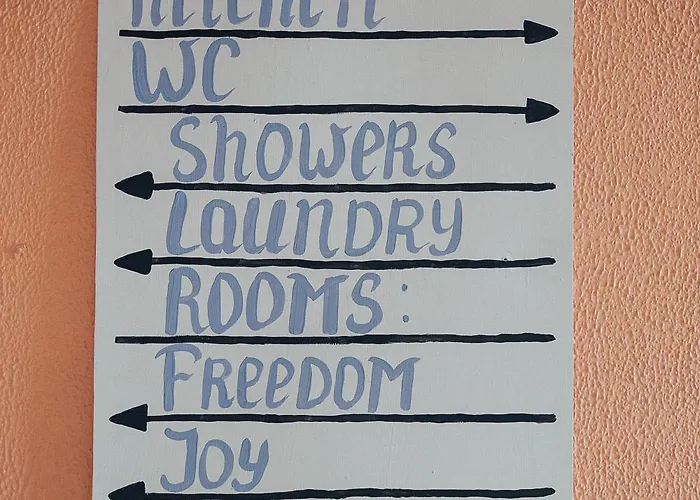 KITCHEN
WC
SHOWERS
LAUNDRY
ROOMS:
FREEDOM
JOY